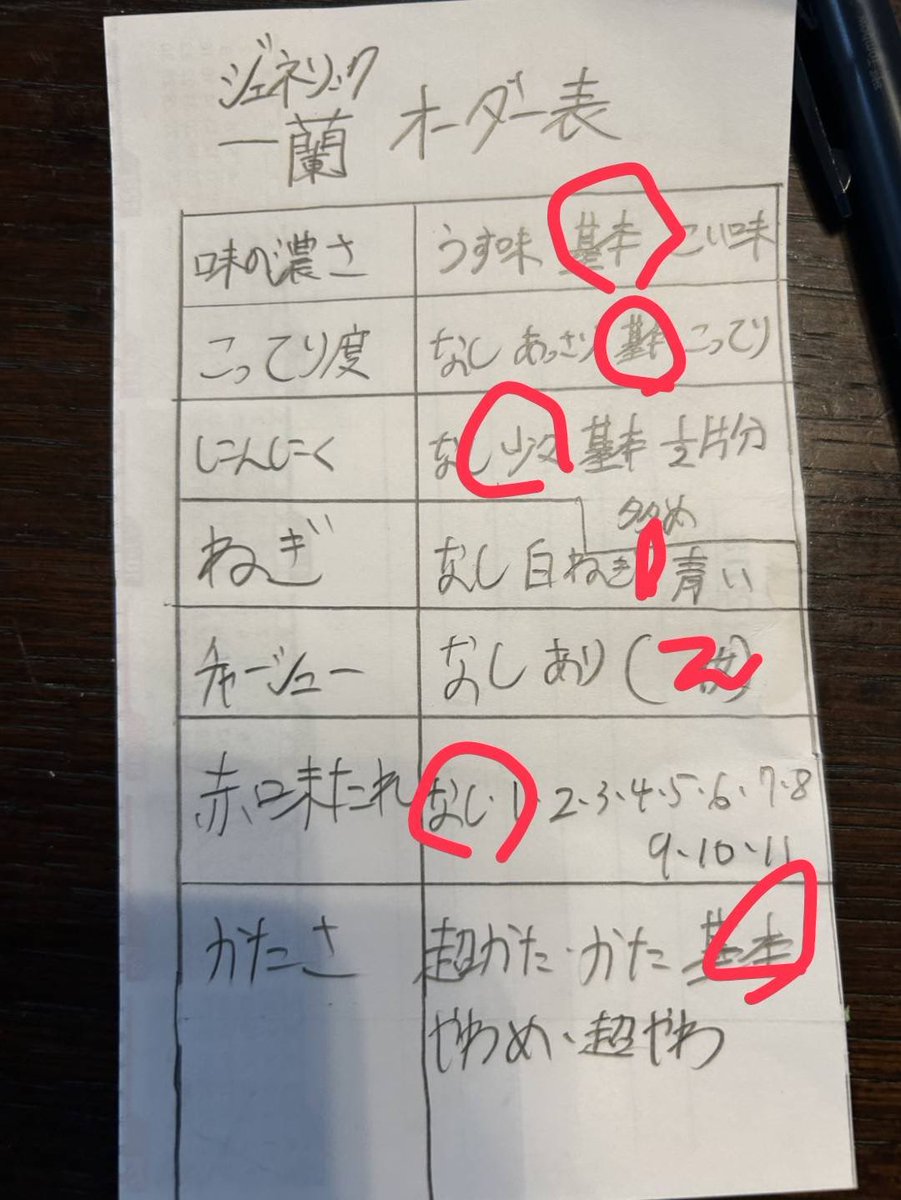 ジェネリック
一蘭 オーダー表
味の濃さ うす味 基本 こい味
こってり度 なし あっさり 基本 こってり
にんにく なし 少々 基本 1/2片分
多め
ねぎ なし 白ねぎ 青い
チャーシュー なし あり(
赤口味たれ なし・1・2・3・4・5・6・7・8
9・10・11
かたさ 超かた・かた 基本
やわめ・超やわ